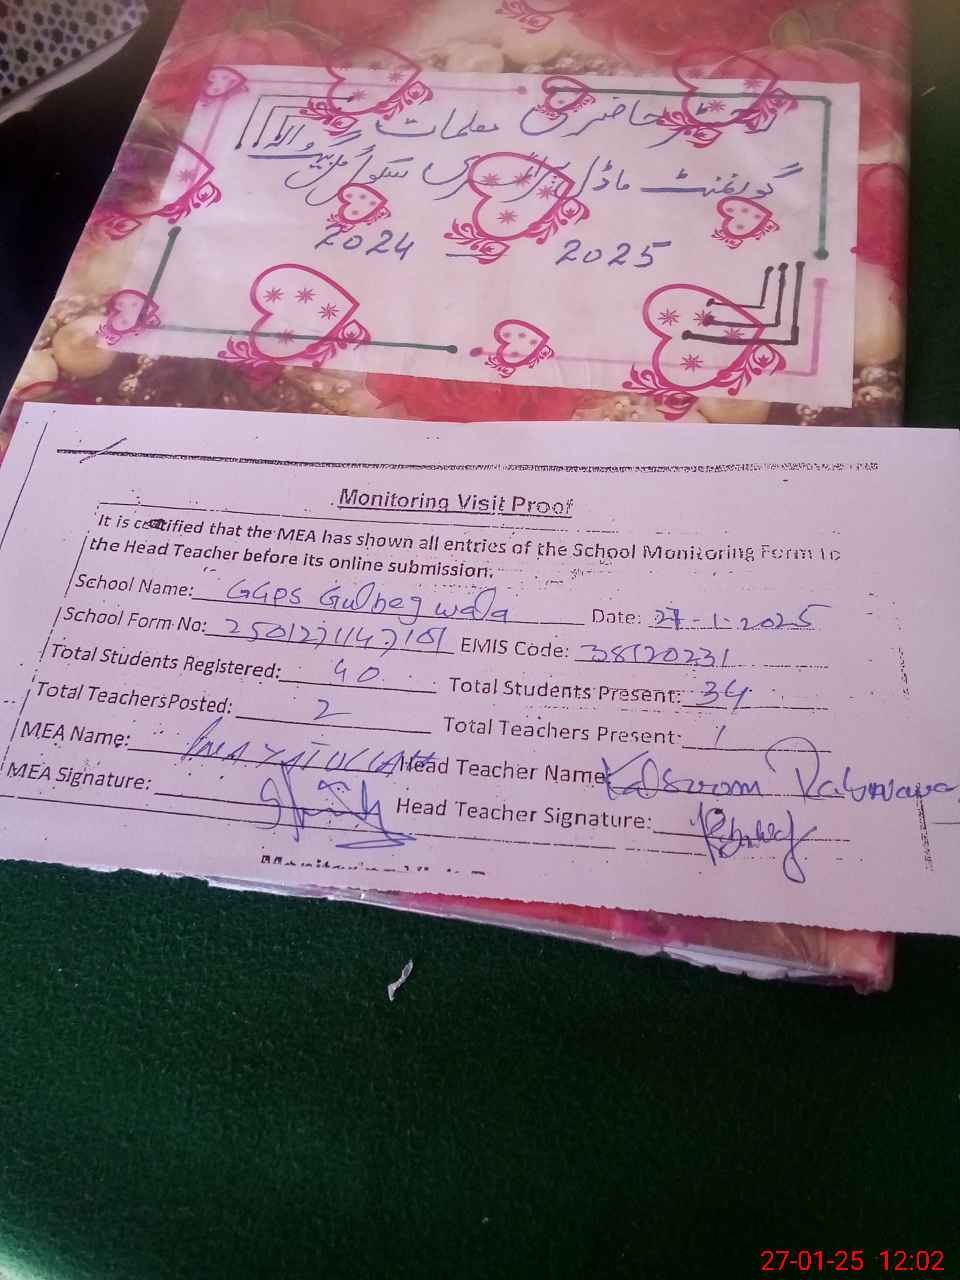 رجسٹر حاضری معلمات
گورنمنٹ ماڈل پرائمری سکول گل بیگ والا
2024 — 2025
Monitoring Visit Proof
It is certified that the MEA has shown all entries of the School Monitoring Form to
the Head Teacher before its online submission.
School Name: GGPS Gulbeg wala Date: 27-1-2025
School Form No: EMIS Code: 38120231
Total Students Registered: 40 Total Students Present: 34
Total Teachers Posted: 2 Total Teachers Present: 1
MEA Name: INAYATULLAH Head Teacher Name: Kalsoom
MEA Signature: Head Teacher Signature:
27-01-25 12:02